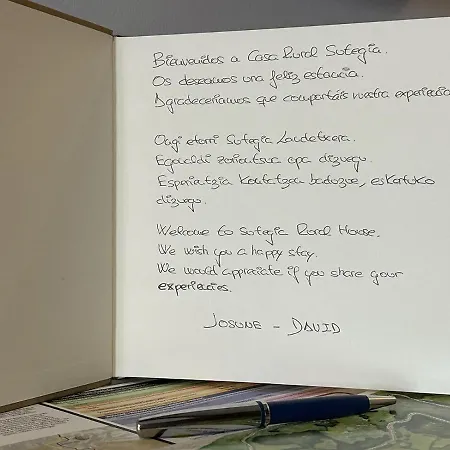 Bienvenidos a Casa Rural Sutegia.
Os deseamos una feliz estancia.
Agradeceriamos que compartáis vuestra experiencia
Ongi etorri Sutegia Landetxera.
Egonaldi zoriontsua opa dizuegu.
Esperientzia kontatzea baduzue, eskertuko
dizuegu.
Welcome to Sutegia Rural House.
We wish you a happy stay.
We would appreciate if you share your
experiencies.
JOSUNE - DAVID